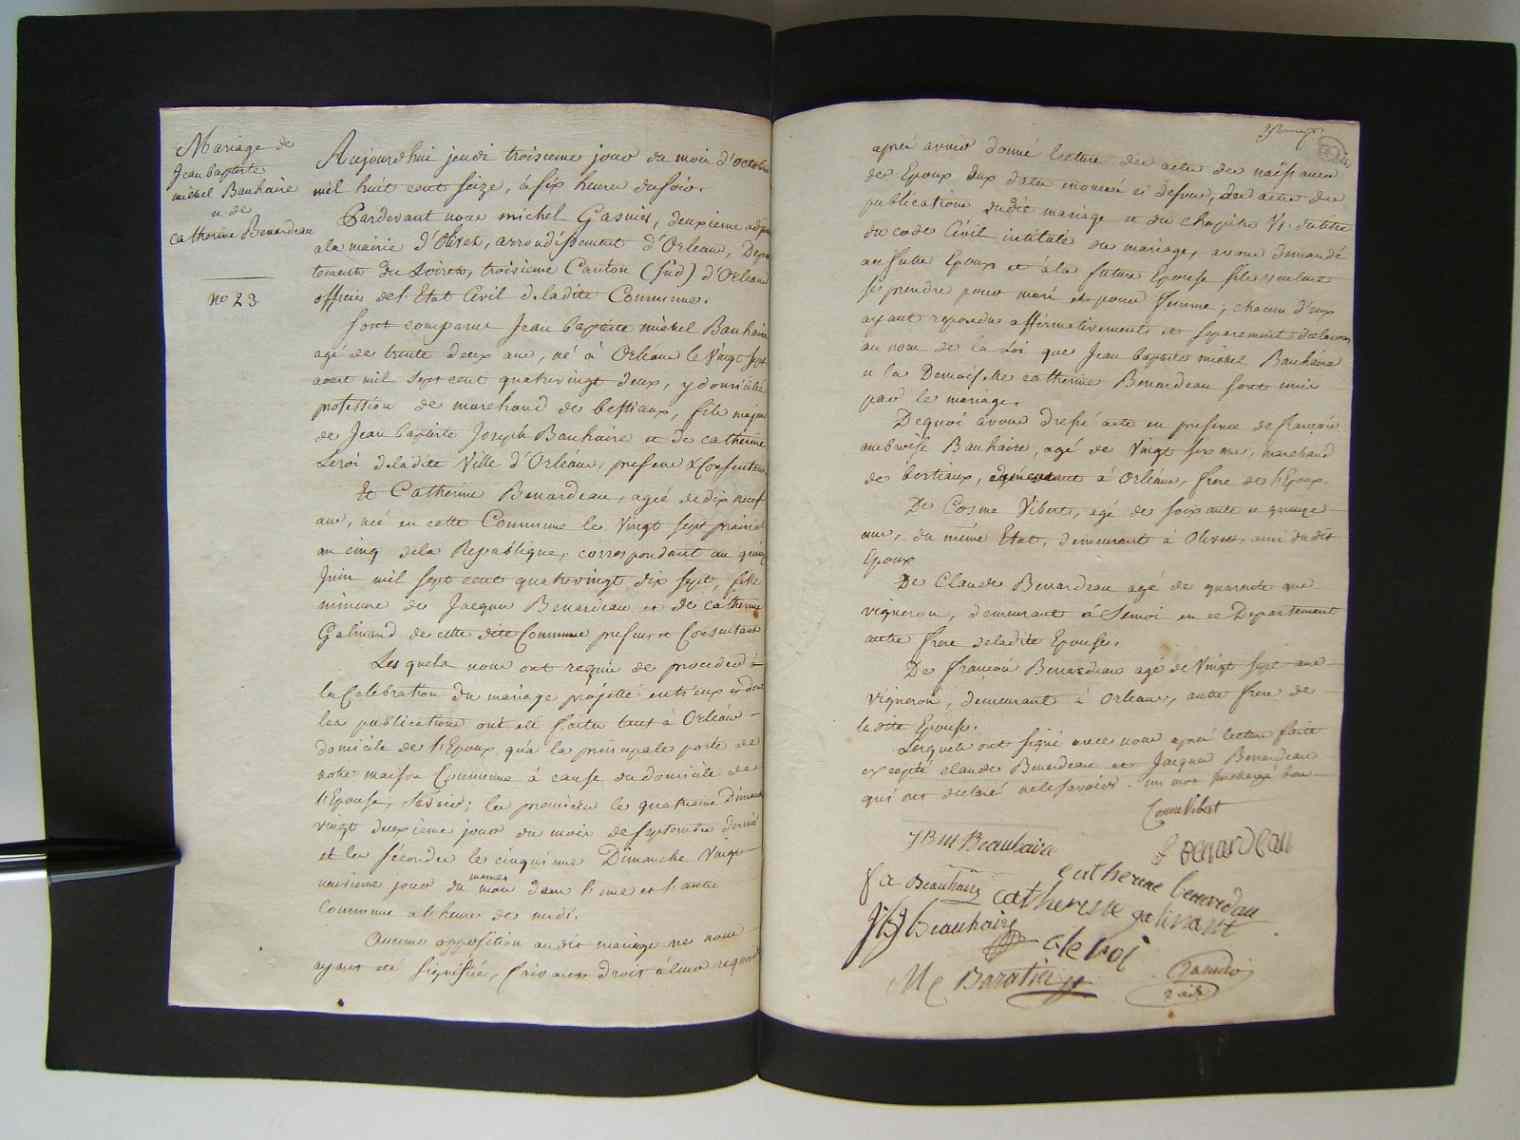 Mariage de
Jean baptiste
michel Bauhaire
et de
Catherine Benardeau
no 23
Aujourdhui jeudi troisieme jour du mois d'octobre
mil huit cent seize, à six heures du soir.
Pardevant nous michel Gasnier, deuxieme adjoint
a la mairie d'Olivet, arrondissement d'Orleans, Depar
tement du Loiret, troisieme Canton (sud) d'Orleans
officier de l'Etat Civil de ladite Commune.
Sont comparus Jean baptiste michel Bauhaire
agé de trente deux ans, né à Orléans le Vingt sept
aout mil sept cent quatrevingt deux, y domicilié
profession de marchand de bestiaux, fils majeur
de Jean baptiste Joseph Bauhaire et de catherine
Leroi de ladite Ville d'Orléans, presens & Consentans
Et Catherine Benardeau, agée de dix neuf
ans, née en cette Commune le Vingt sept prairial
an cinq de la Republique, correspondant au quinze
Juin mil sept cent quatrevingt dix sept, fille
mineure de Jacques Benardeau et de catherine
Galinand de cette dite Commune presens et Consentans
Lesquels nous ont requis de proceder à
la Celebration du mariage projetté entr'eux et dont
les publications ont été faites tant à Orléans
domicile de l'Epoux qu'à la principale porte de
notre maison Commune à cause du domicile de
l'Epouse, Savoir; les premieres le quatrieme dimanche
vingt deuxieme jour du mois de septembre dernier
et les secondes le cinquieme Dimanche Vingt
neuvieme jour du même mois dans l'une et l'autre
Commune à l'heure de midi.
Aucune opposition audit mariage ne nous
ayant été signifiée, faisant droit à leur requisition
après avoir donné lecture des actes de naissances
des Epoux aux dates enoncées ci dessus, des actes des
publications dudit mariage et du chapitre VI du titre
du code Civil intitulé du mariage, avons demandé
au futur Epoux et à la future Epouse s'ils veulent
se prendre pour mari et pour femme; chacun d'eux
ayant repondu affirmativement et separement declarons
au nom de la Loi que Jean baptiste michel Bauhaire
et la Demoiselle catherine Benardeau sont unis
par le mariage.
Dequoi avons dressé acte en presence de françois
ambroise Bauhaire, agé de Vingt six ans, marchand
de bestiaux, demeurant à Orléans, frere de l'Epoux.
De Cosme Vibert, agé de soixante et quinze
ans, du même Etat, demeurant à Olivet, ami dudit
Epoux
De Claude Benardeau agé de quarante ans
vigneron, demeurant à Semoi en ce Departement
autre frere de ladite Epouse.
De françois Benardeau agé de Vingt sept ans
vigneron, demeurant à Orleans, autre frere de
ladite Epouse.
Lesquels ont signé avec nous après lecture faite
excepté claude Benardeau et Jacques Benardeau
qui ont declaré ne le savoir. un mot surchargé bon
Cosme Vibert
JBM Beauhaire
F benardeau
f a Beauhaire
catherine benardeau
catherine galinant
JBJ Beauhaire
C leroi
M C Baratier
Gasnier